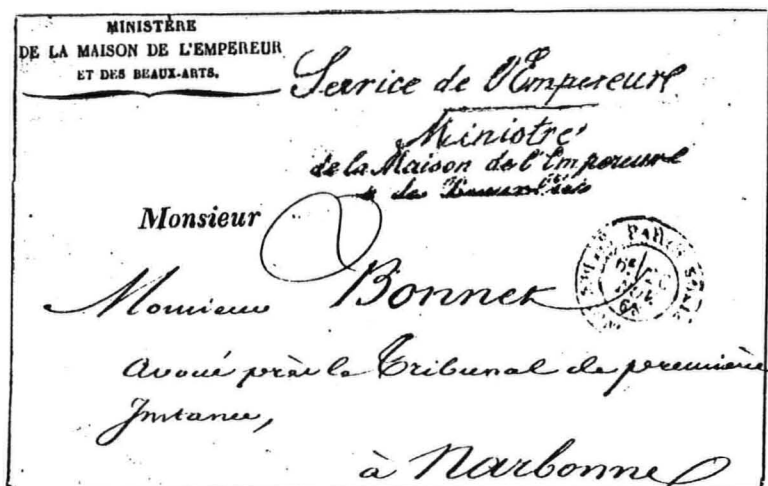 MINISTÈRE
DE LA MAISON DE L'EMPEREUR
ET DES BEAUX-ARTS.
Service de l'Empereur
Ministre
de la Maison de l'Empereur
& des Beaux-Arts
Monsieur
Monsieur Bonnet
PARIS
avoué près le Tribunal de première
Instance,
à Narbonne